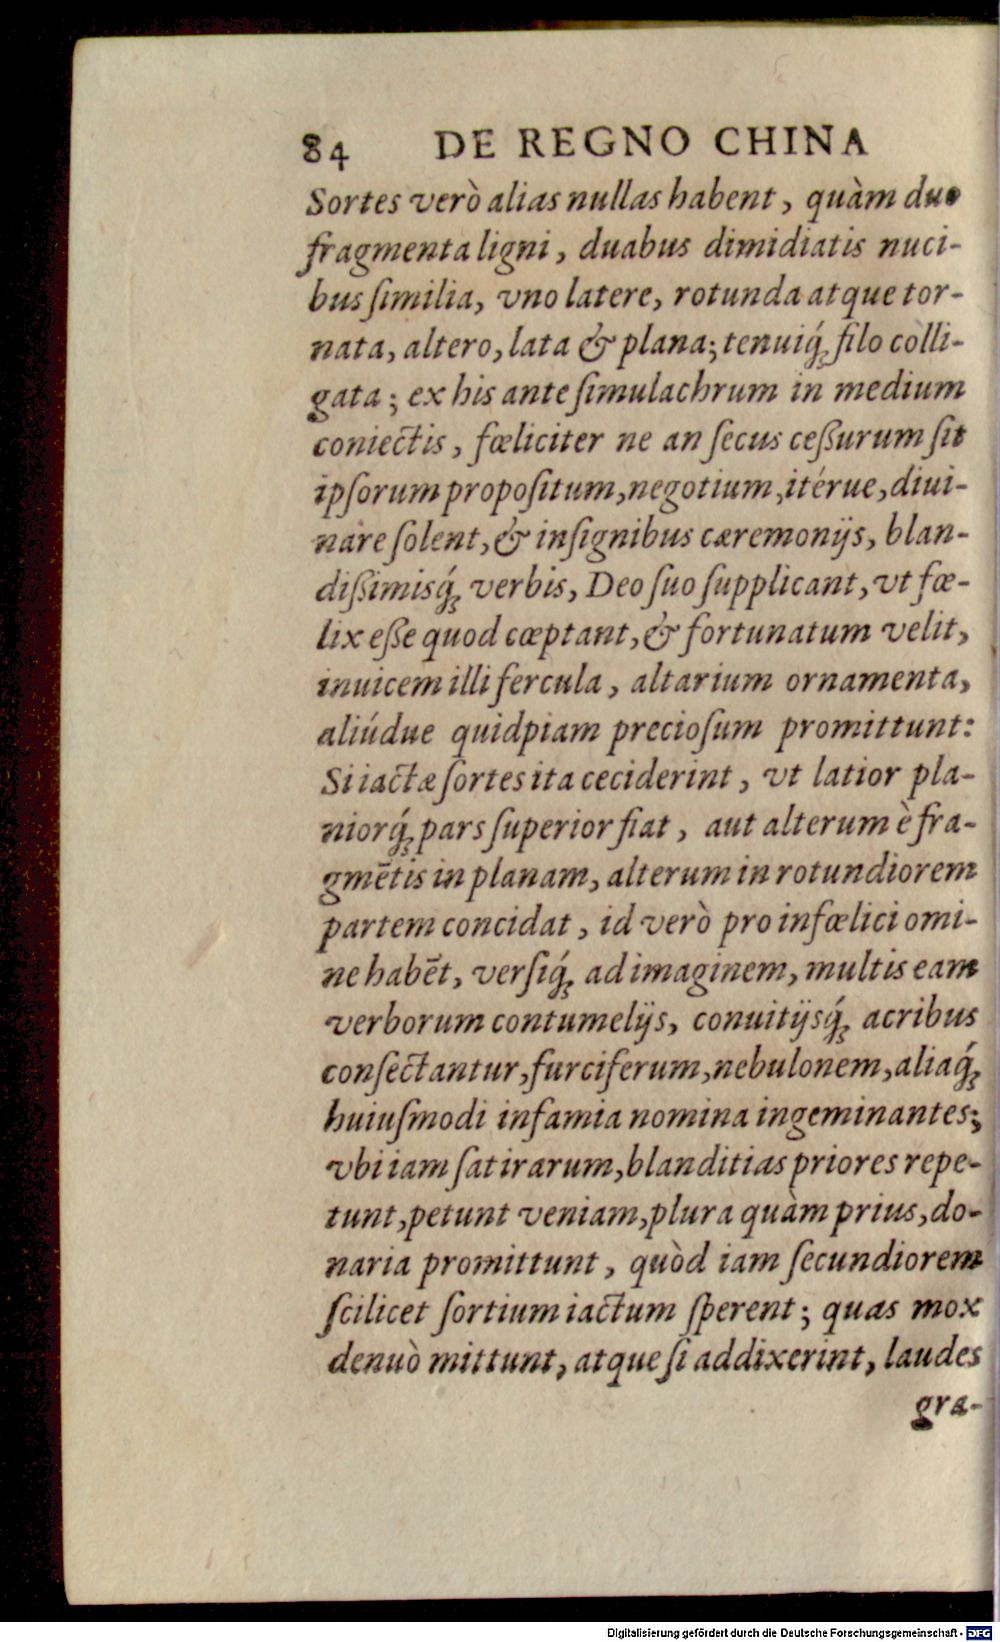 84 DE REGNO CHINA
Sortes verò alias nullas habent, quàm duo
fragmenta ligni, duabus dimidiatis nuci-
bus ſimilia, vno latere, rotunda atque tor-
nata, altero, lata & plana; tenuiq́ꝫ filo colli-
gata; ex his ante ſimulachrum in medium
coniectis, fœliciter ne an ſecus ceßurum ſit
ipſorum propoſitum, negotium, itérue, diui-
nare ſolent, & inſignibus cæremonijs, blan-
dißimisq́ꝫ verbis, Deo ſuo ſupplicant, vt fœ-
lix eße quod cœptant, & fortunatum velit,
inuicem illi fercula, altarium ornamenta,
aliúdue quidpiam precioſum promittunt:
Si iactæ ſortes ita ceciderint, vt latior pla-
niorq́ꝫ pars ſuperior fiat, aut alterum è fra-
gmētis in planam, alterum in rotundiorem
partem concidat, id verò pro infœlici omi-
ne habēt, verſiq́ꝫ ad imaginem, multis eam
verborum contumelijs, conuitijsq́ꝫ acribus
conſectantur, furciferum, nebulonem, aliaq́ꝫ
huiuſmodi infamia nomina ingeminantes;
vbi iam ſat irarum, blanditias priores repe-
tunt, petunt veniam, plura quàm prius, do-
naria promittunt, quòd iam ſecundiorem
ſcilicet ſortium iactum ſperent; quas mox
denuò mittunt, atque ſi addixerint, laudes
gra-
Digitalisierung gefördert durch die Deutsche Forschungsgemeinschaft - DFG